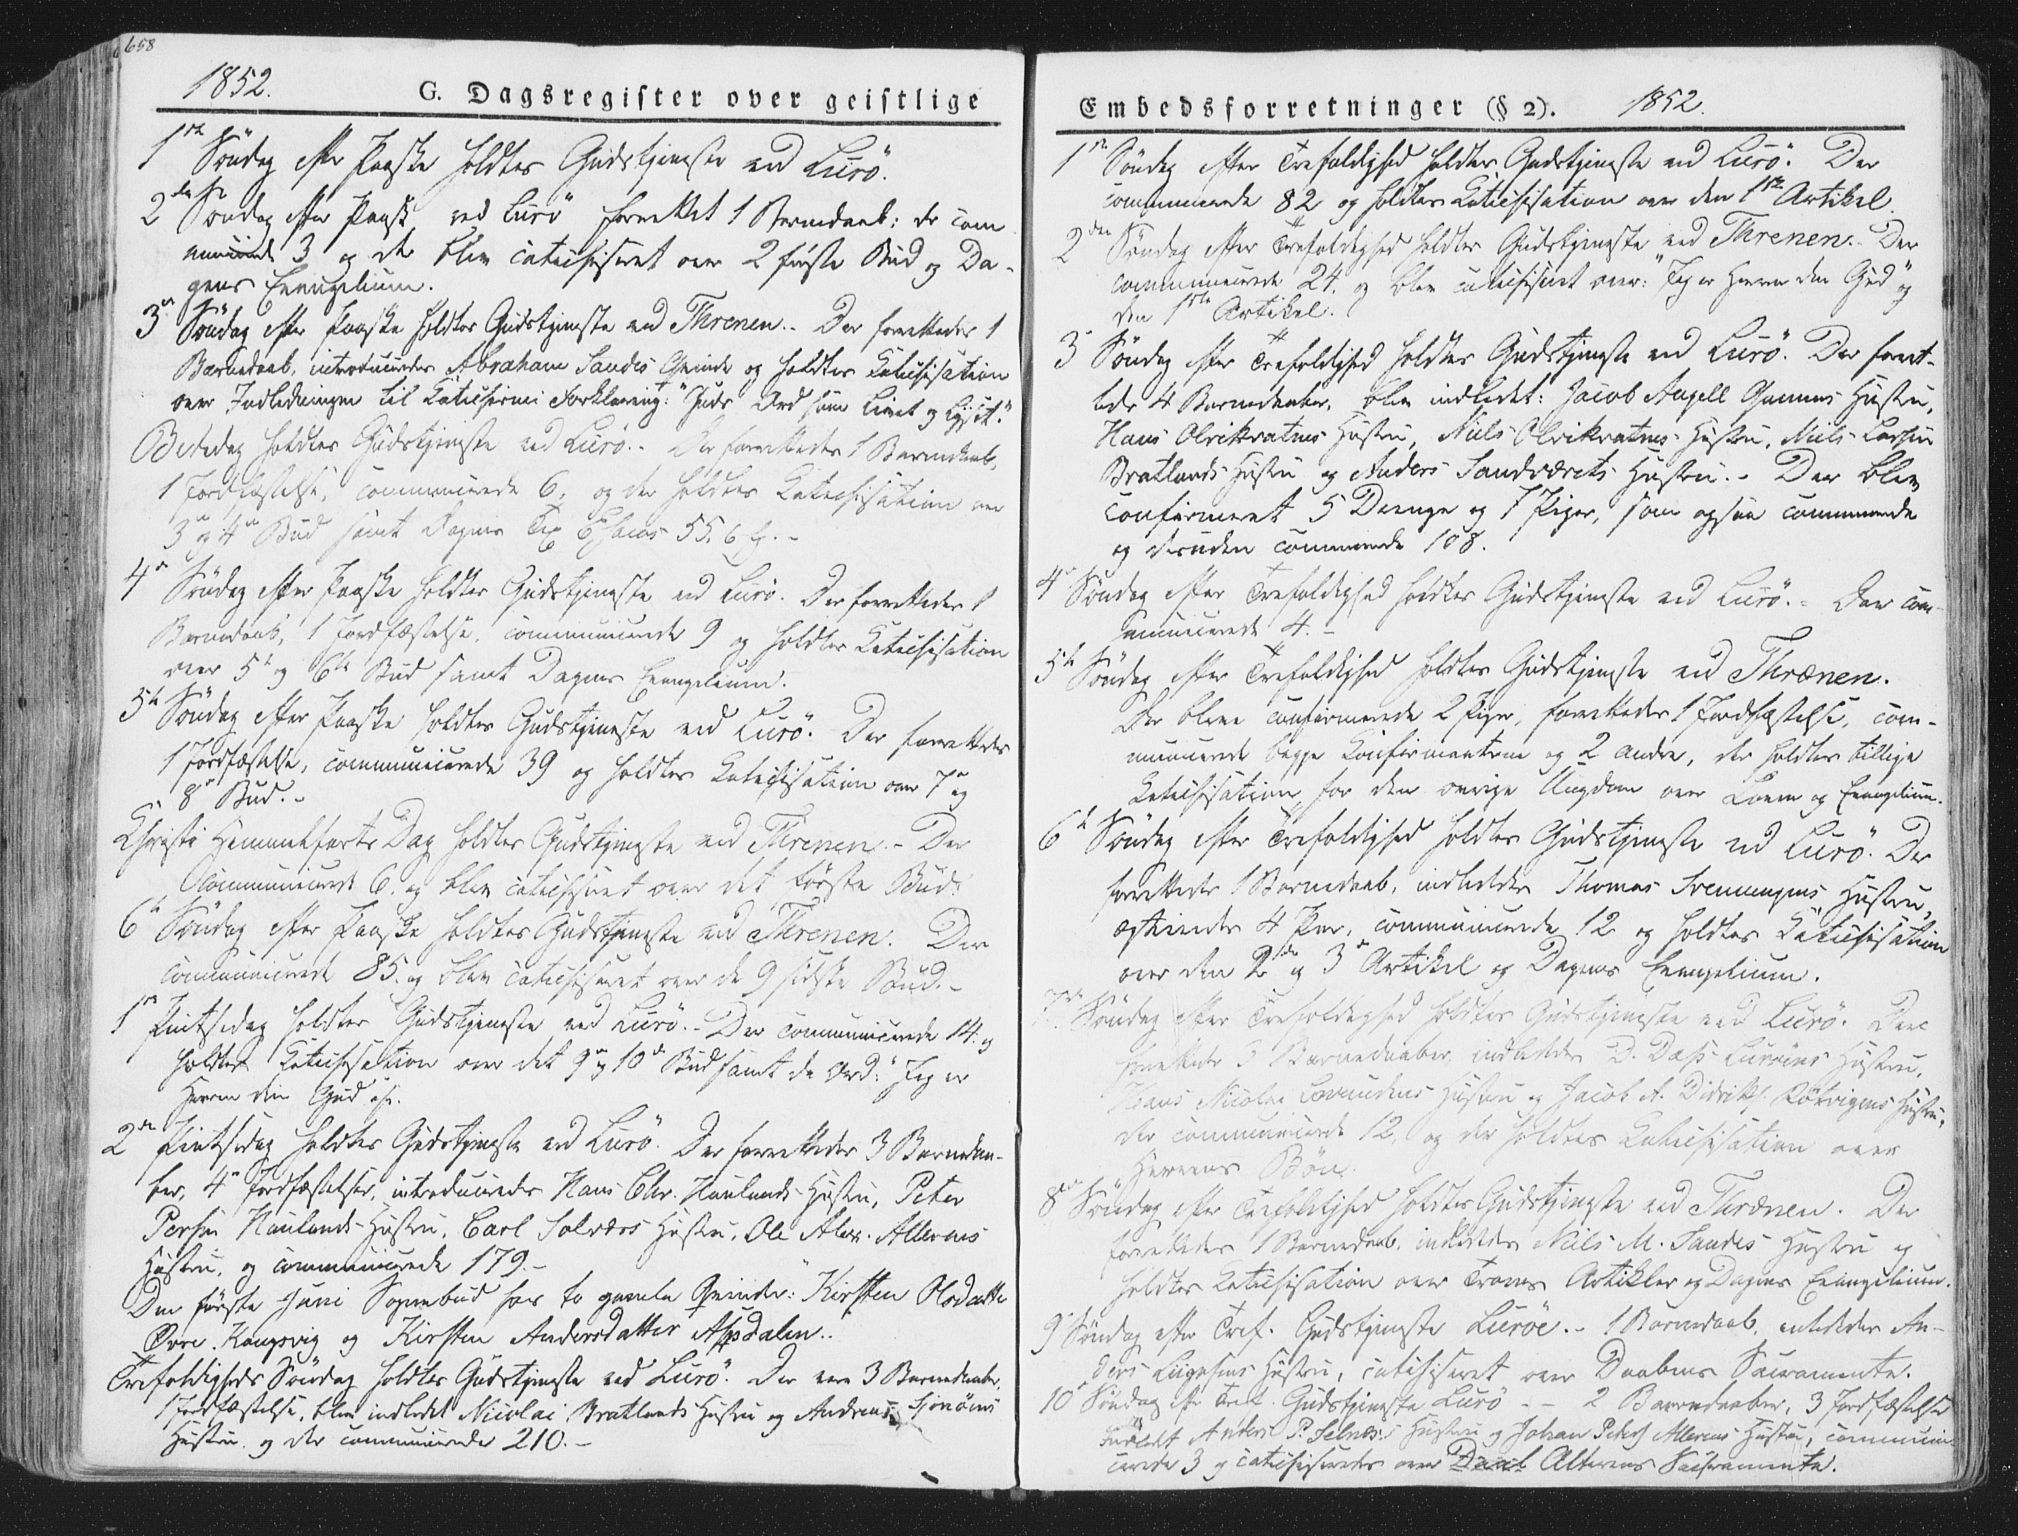 658
1852.
G. Dagsregister over geistlige
1ste Söndag efter Paaske holdtes Gudstjeneste ved Lurö.
2den Söndag efter Paaske ved Lurö forrettet 1 Barnedaab; der com
municerede 3 og der blev catechiseret over 2 første Bud og Da-
gens Evangelium.
3die Söndag efter Paaske holdtes Gudstjeneste ved Threnen. - Der forrettedes 1
Barnedaab, introduceredes Abraham Sandes Qvinde og holdtes Katechisation
over Indledningen til Katechismi Forklaring: "Guds Ord som Livet og Lyset."
Bededag holdtes Gudstjeneste ved Lurö. - Der forrettedes 1 Barnedaab,
1 Jordfæstelse, communicerede 6, og der holdtes Katechisation over
3die og 4de Bud samt Dagens Tex Esaias 55. 6 fg. -
4de Söndag efter Paaske holdtes Gudstjeneste ved Lurö. Der forrettedes 1
Barnedaab, 1 Jordfæstelse, communicerede 9 og holdtes Katechisation
over 5te og 6te Bud samt Dagens Evangelium.
5te Söndag efter Paaske holdtes Gudstjeneste ved Lurö. Der forrettedes
1 Jordfæstelse, communicerede 39 og holdtes Katechisation over 7de og
8de Bud. -
Christi Himmelfarts Dag holdtes Gudstjeneste ved Threnen. - Der
communicerede 6. og blev catechiseret over det første Bud.
6te Söndag efter Paaske holdtes Gudstjeneste ved Threnen. Der
communicerede 85. og blev catechiseret over de 9 sidste Bud. -
1ste Pintsedag holdtes Gudstjeneste ved Lurö. - Der communicerede 14. og
holdtes Katechisation over det 9de og 10de Bud samt de Ord: "Jeg er
Herren din Gud"
2den Pintsedag holdtes Gudstjeneste ved Lurö. Der forrettedes 3 Barnedaa-
ber, 4 Jordfæstelser, introduceredes Hans Chr. Haulands Hustru, Peter
Persen Haulands Hustru, Carl Solværs Hustru, Ole Alex. Alternes
Hustru, og communicerede 179. -
Den første Juni Sognebud hos to gamle Qvinder: Kirsten Olsdatter
Øvre Kongsvig og Kirsten Andersdatter Aspdalen..
Trefoldigheds Söndag holdtes Gudstjeneste ved Lurö. Der var 3 Barnedaaber,
1 Jordfæstelse, blev indledet Nicolai Bratlands Hustru og Andreas Sjonöens
Hustru og der communicerede 210. -
Embedsforretninger (§ 2).
1852.
1ste Söndag efter Trefoldighed holdtes Gudstjeneste ved Lurö. Der
communicerede 82 og holdtes Katechisation over den 1ste Artikel
2den Söndag efter Trefoldighed holdtes Gudstjeneste ved Threnen. Der
communicerede 24. og blev catechiseret over: "Jeg er Herren din Gud" og
den 1ste Artikel.
3die Söndag efter Trefoldighed holdtes Gudstjeneste ved Lurö. Der forret-
tedes 4 Barnedaaber, blev indledet: Jacob Angell Hustru,
Hans Olvikvatnes Hustru, Niels Olvikvatnes Hustru, Niels Larsen
Bratlands Hustru og Anders Sandværets Hustru. - Der blev
confirmeret 5 Drenge og 7 Piger, som ogsaa communicerede
og desuden communicerede 108.
4de Söndag efter Trefoldighed holdtes Gudstjeneste ved Lurö. - Der com-
municerede 4. -
5te Söndag efter Trefoldighed holdtes Gudstjeneste ved Thrænen.
Der bleve confirmerede 2 Piger, forrettedes 1 Jordfæstelse, com-
municerede begge Konfirmanterne og 2 andre, der holdtes tillige
Katechisation for den øvrige Ungdom over Loven og Evangelium.
6te Söndag efter Trefoldighed holdtes Gudstjeneste ved Lurö. Der
forrettedes 1 Barnedaab, indlededes Thomas Svenningens Hustru,
ægteviedes 4 Par, communicerede 12 og holdtes Katechisation
over den 2den og 3die Artikel og Dagens Evangelium.
7de Söndag efter Trefoldighed holdtes Gudstjeneste ved Lurö. Der
forrettedes 3 Barnedaaber, indlededes D. Dass Luröens Hustru,
Hans Nicolai Lovundens Hustru og Jacob A. Didriks. Rötvigens Hustru,
der communicerede 12, og der holdtes Katechisation over
Herrens Bøn.
8de Söndag efter Trefoldighed holdtes Gudstjeneste ved Thrænen. Der
forrettedes 1 Barnedaab, indlededes Niels M. Sandes Hustru og
holdtes Katechisation over Troens Artikler og Dagens Evangelium.
9de Söndag efter Tref. Gudstjeneste Luröe. - 1 Barnedaab, indlededes An-
ders Hustru, catechiseret over Daabens Sacramente.
10de Söndag efter Tref. Gudstjeneste Lurö - - 2 Barnedaaber, 3 Jordfæstelser
Indledet Anders P. Selnæs's Hustru og Johan Peters Alternes Hustru, communi
cerede 3 og catechiseredes over Alterens Sacramente.